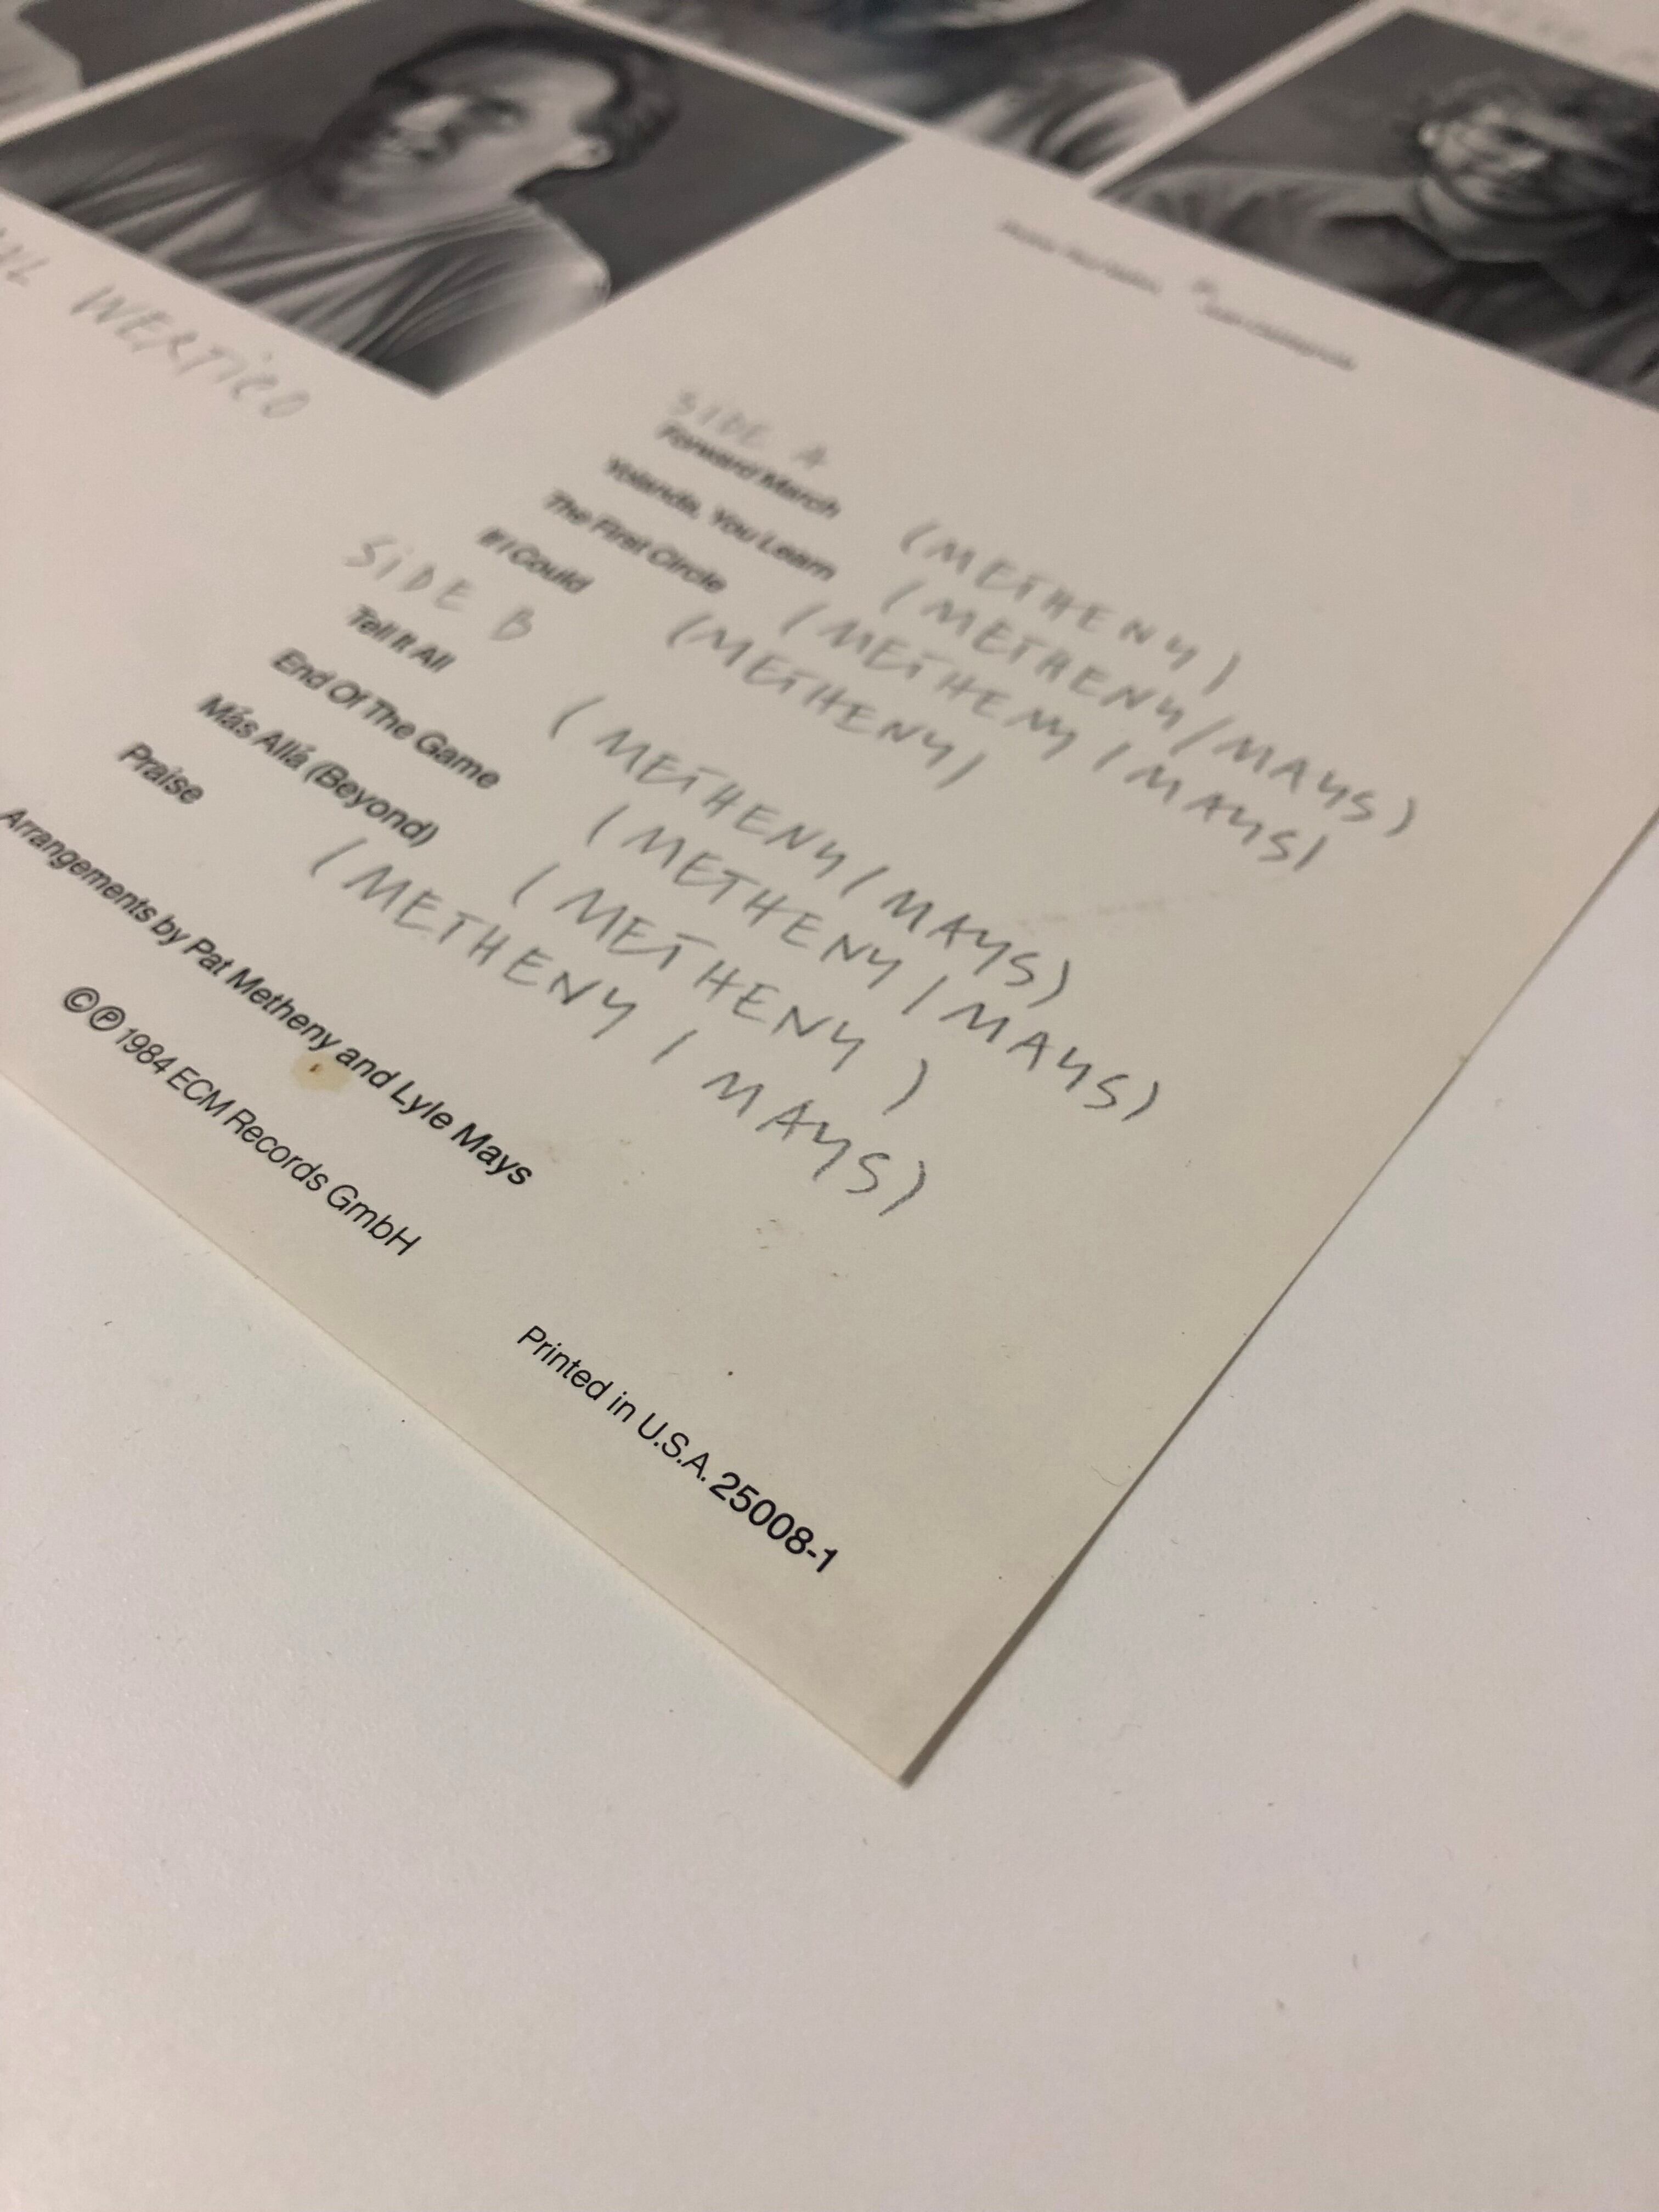 WERTICO
SIDE A
Forward March (METHENY)
Yolanda, You Learn (METHENY/MAYS)
The First Circle (METHENY/MAYS)
If I Could (METHENY)
SIDE B
Tell It All (METHENY/MAYS)
End Of The Game (METHENY/MAYS)
Más Allá (Beyond) (METHENY)
Praise (METHENY/MAYS)
Arrangements by Pat Metheny and Lyle Mays
©℗ 1984 ECM Records GmbH
Printed in U.S.A. 25008-1